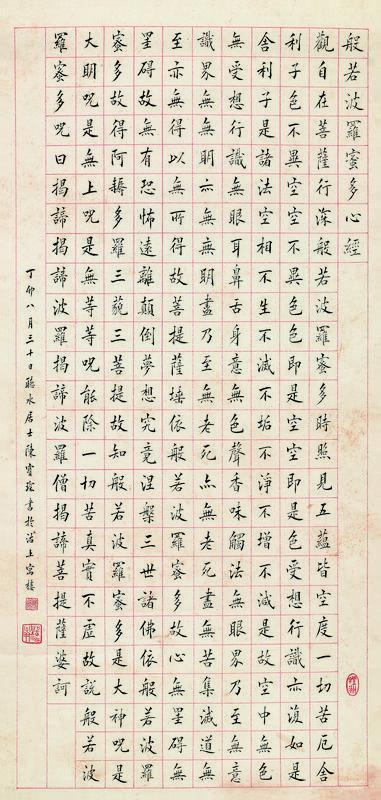 般若波羅蜜多心經
觀自在菩薩行深般若波羅蜜多時照見五蘊皆空度一切苦厄舍
利子色不異空空不異色色即是空空即是色受想行識亦復如是
舍利子是諸法空相不生不滅不垢不淨不增不減是故空中無色
無受想行識無眼耳鼻舌身意無色聲香味觸法無眼界乃至無意
識界無無明亦無無明盡乃至無老死亦無老死盡無苦集滅道無
至亦無得以無所得故菩提薩埵依般若波羅蜜多故心無罣碍無
罣碍故無有恐怖遠離顛倒夢想究竟涅槃三世諸佛依般若波羅
蜜多故得阿耨多羅三藐三菩提故知般若波羅蜜多是大神呪是
大明呪是無上呪是無等等呪能除一切苦真實不虛故說般若波
羅蜜多呪曰揭諦揭諦波羅揭諦波羅僧揭諦菩提薩婆訶
丁卯八月三十日聽水居士陳寶琛書於滬上寓樓